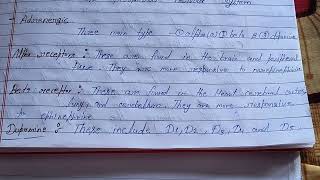 system
- Adrenergic
Three main type - ① alpha(α) ② beta & ③ dopamine
Alfa receptor : These are found in the brain and peripheral
tissue. They was more responsive to norepinephrine
Beta receptor : These are found in the Heart cerebral cortex,
lung, and cerebellum. They are more responsive
to ephinephrine
Dopamine : These include D1, D2, D3, D4 and D5